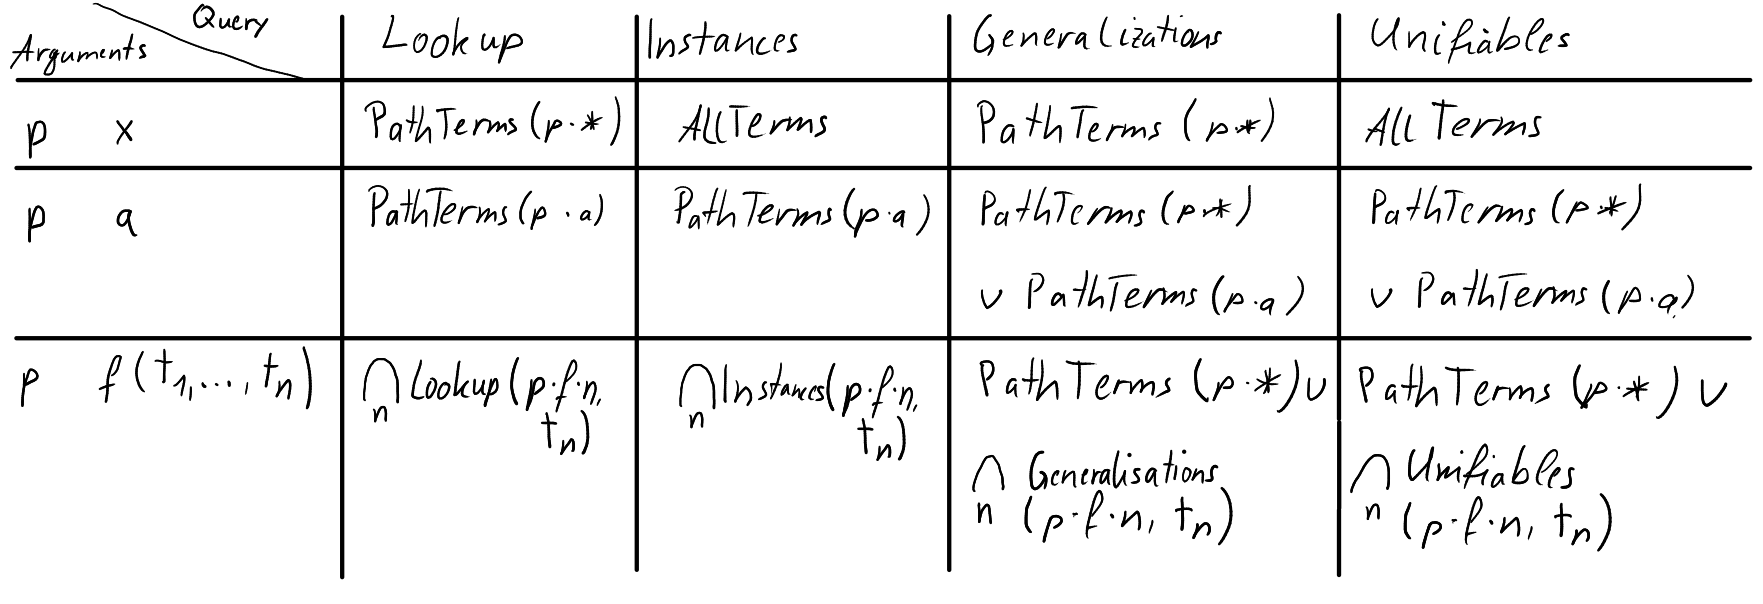 Arguments Query Lookup Instances Generalizations Unifiables
p x PathTerms (p·*) AllTerms PathTerms (p·*) All Terms
p a PathTerms (p·a) PathTerms (p·a) PathTerms (p·*) PathTerms (p·*)
∪ PathTerms (p·a) ∪ PathTerms (p·a)
p f(t₁,...,tₙ) ⋂ₙ Lookup (p·f·n, ⋂ₙ Instances (p·f·n, PathTerms (p·*) ∪ PathTerms (p·*) ∪
tₙ) tₙ)
⋂ₙ Generalisations ⋂ₙ Unifiables
(p·f·n, tₙ) (p·f·n, tₙ)